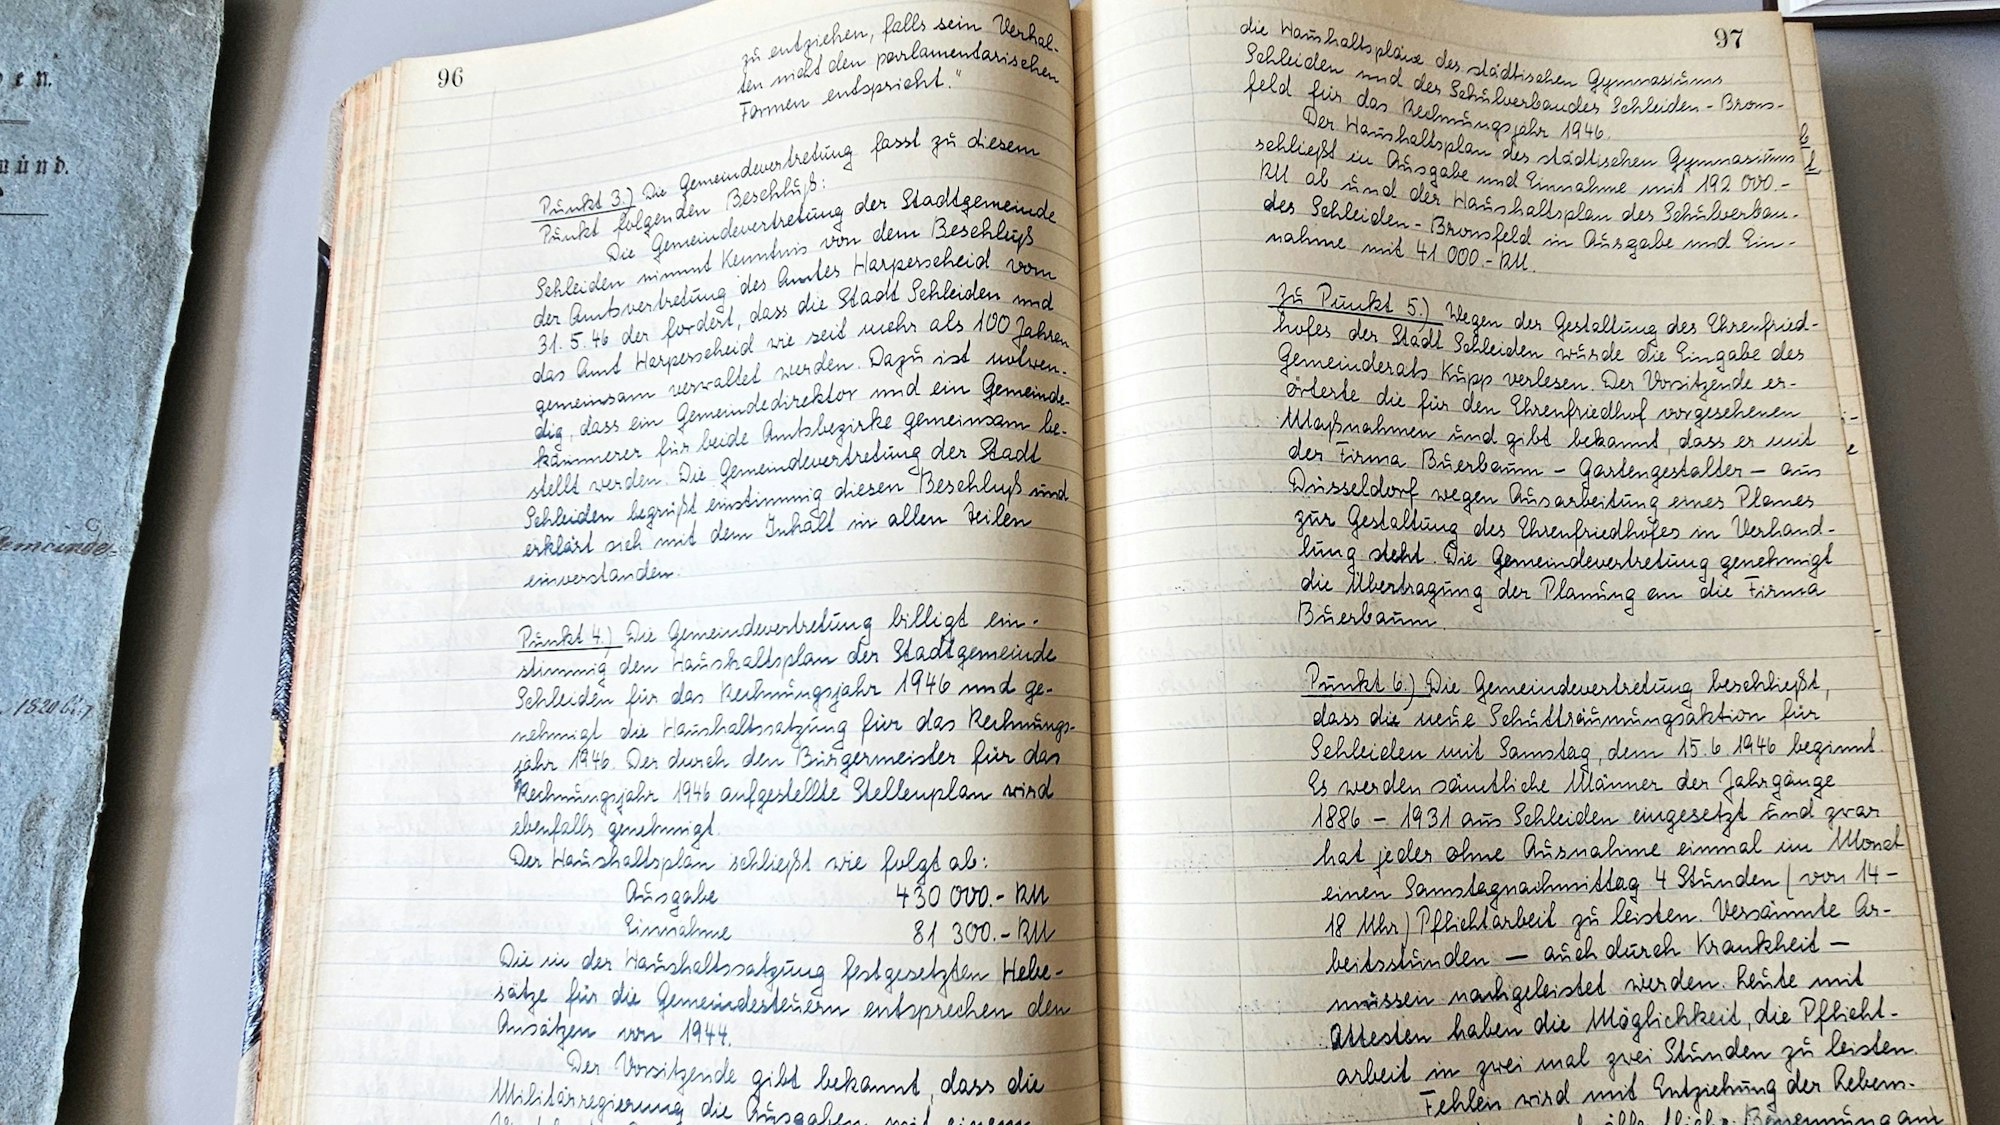 en.
münd.
Gemeinde-
1820 bis
96
zu entziehen, falls sein Verhal-
ten nicht den parlamentarischen
Formen entspricht."
Punkt 3.) Die Gemeindevertretung fasst zu diesem
Punkt folgenden Beschluß:
Die Gemeindevertretung der Stadtgemeinde
Schleiden nimmt Kenntnis von dem Beschluß
der Amtsvertretung des Amtes Harperscheid vom
31.5.46 der fordert, dass die Stadt Schleiden und
das Amt Harperscheid wie seit mehr als 100 Jahren
gemeinsam verwaltet werden. Dazu ist notwen-
dig, dass ein Gemeindedirektor und ein Gemeinde-
kämmerer für beide Amtsbezirke gemeinsam be-
stellt werden. Die Gemeindevertretung der Stadt
Schleiden begrüßt einstimmig diesen Beschluß und
erklärt sich mit dem Inhalt in allen Teilen
einverstanden.
Punkt 4.) Die Gemeindevertretung billigt ein-
stimmig den Haushaltsplan der Stadtgemeinde
Schleiden für das Rechnungsjahr 1946 und ge-
nehmigt die Haushaltssatzung für das Rechnungs-
jahr 1946. Der durch den Bürgermeister für das
Rechnungsjahr 1946 aufgestellte Stellenplan wird
ebenfalls genehmigt.
Der Haushaltsplan schließt wie folgt ab:
Ausgabe 430 000.- RM
Einnahme 81 300.- RM
Die in der Haushaltssatzung festgesetzten Hebe-
sätze für die Gemeindesteuern entsprechen den
Ansätzen von 1944.
Der Vorsitzende gibt bekannt, dass die
Militärregierung die Ausgaben mit einem
97
die Haushaltspläne des städtischen Gymnasiums
Schleiden und des Schulverbandes Schleiden-Brons-
feld für das Rechnungsjahr 1946.
Der Haushaltsplan des städtischen Gymnasiums
schließt in Ausgabe und Einnahme mit 192 000.-
RM ab und der Haushaltsplan des Schulverban-
des Schleiden-Bronsfeld in Ausgabe und Ein-
nahme mit 41 000.- RM.
Zu Punkt 5.) Wegen der Gestaltung des Ehrenfried-
hofes der Stadt Schleiden wurde die Eingabe des
Gemeinderats Küpp verlesen. Der Vorsitzende er-
örterte die für den Ehrenfriedhof vorgesehenen
Maßnahmen und gibt bekannt, dass er mit
der Firma Buerbaum - Gartengestalter - aus
Düsseldorf wegen Ausarbeitung eines Planes
zur Gestaltung des Ehrenfriedhofes in Verhand-
lung steht. Die Gemeindevertretung genehmigt
die Übertragung der Planung an die Firma
Buerbaum.
Punkt 6.) Die Gemeindevertretung beschließt,
dass die neue Schutträumungsaktion für
Schleiden mit Samstag, dem 15.6.1946 beginnt.
Es werden sämtliche Männer der Jahrgänge
1886 - 1931 aus Schleiden eingesetzt und zwar
hat jeder ohne Ausnahme einmal im Monat
einen Samstagnachmittag 4 Stunden (von 14-
18 Uhr) Pflichtarbeit zu leisten. Versäumte Ar-
beitsstunden - auch durch Krankheit -
müssen nachgeleistet werden. Leute mit
Attesten haben die Möglichkeit, die Pflicht-
arbeit in zwei mal zwei Stunden zu leisten.
Fehlen wird mit Entziehung der Lebens-
Benennung am